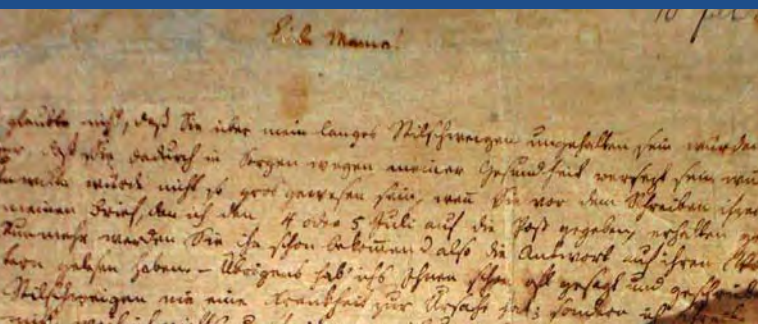 Liebe Mama!
glaubte nicht, daß Sie über mein langes Stilschweigen ungehalten sein würden
daß Sie dadurch in Sorgen wegen meiner Gesundheit versezt sein
würde nicht so gros gewesen sein, wenn Sie vor dem Schreiben
meinen Brief, den ich den 4 oder 5 Juli auf die Post gegeben, erhalten
Nunmehr werden Sie ihn schon bekommen und also die Antwort auf ihren
gelesen haben. – Übrigens hab' ichs Ihnen schon oft gesagt und geschrieben
Stilschweigen nie eine Krankheit zur Ursache hat; sondern